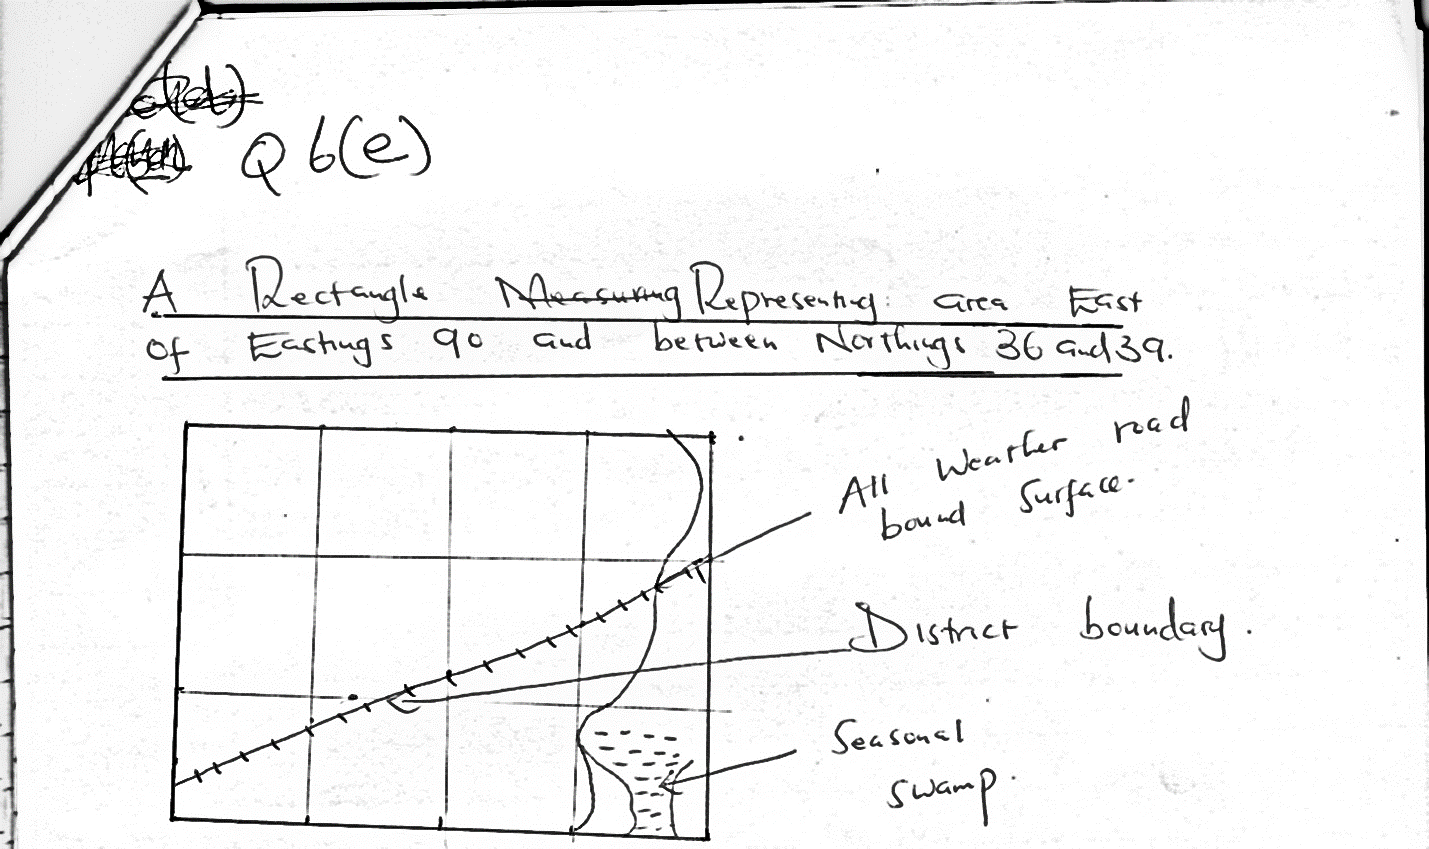 Q 6(e)
A Rectangle Measuring Representing: area East
of Eastings 90 and between Northings 36 and 39.
All Weather road
bound Surface.
District boundary.
Seasonal
swamp.